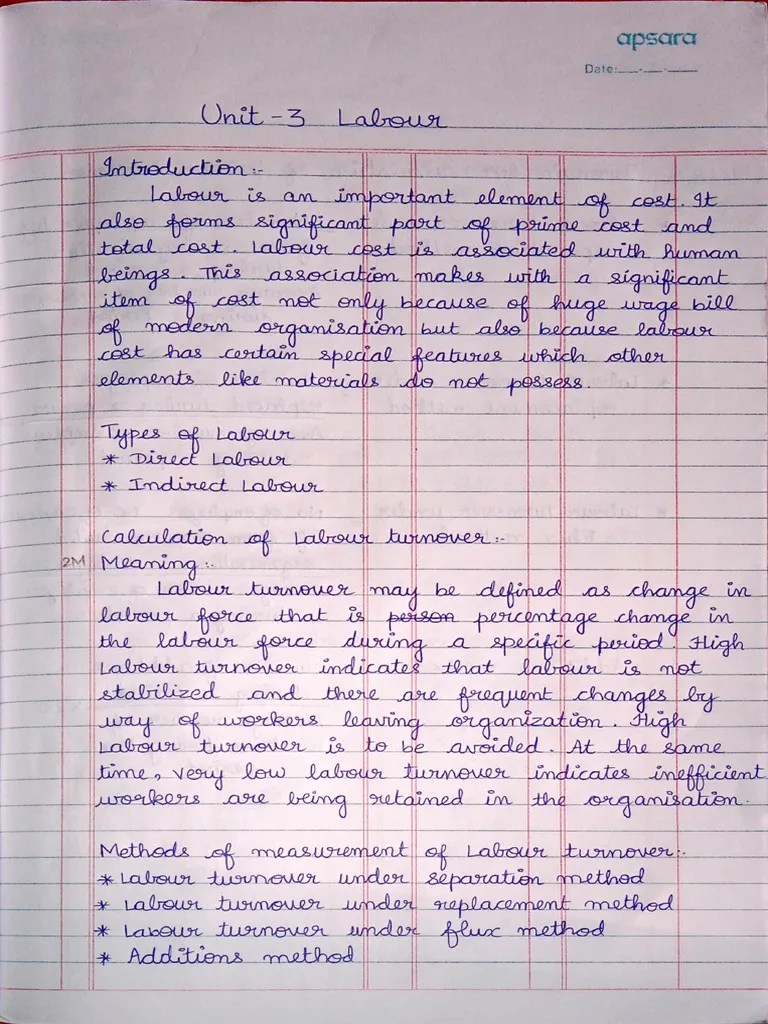 apsara
Date:__.__.__
Unit - 3 Labour
Introduction :-
Labour is an important element of cost. It
also forms significant part of prime cost and
total cost. Labour cost is associated with human
beings. This association makes with a significant
item of cost not only because of huge wage bill
of modern organisation but also because labour
cost has certain special features which other
elements like materials do not possess.
Types of Labour
* Direct Labour
* Indirect Labour
Calculation of Labour turnover :-
2M Meaning :-
Labour turnover may be defined as change in
labour force that is person percentage change in
the labour force during a specific period. High
Labour turnover indicates that labour is not
stabilized and there are frequent changes by
way of workers leaving organization. High
Labour turnover is to be avoided. At the same
time, very low labour turnover indicates inefficient
workers are being retained in the organisation.
Methods of measurement of Labour turnover :-
* Labour turnover under separation method
* Labour turnover under replacement method
* Labour turnover under flux method
* Additions method